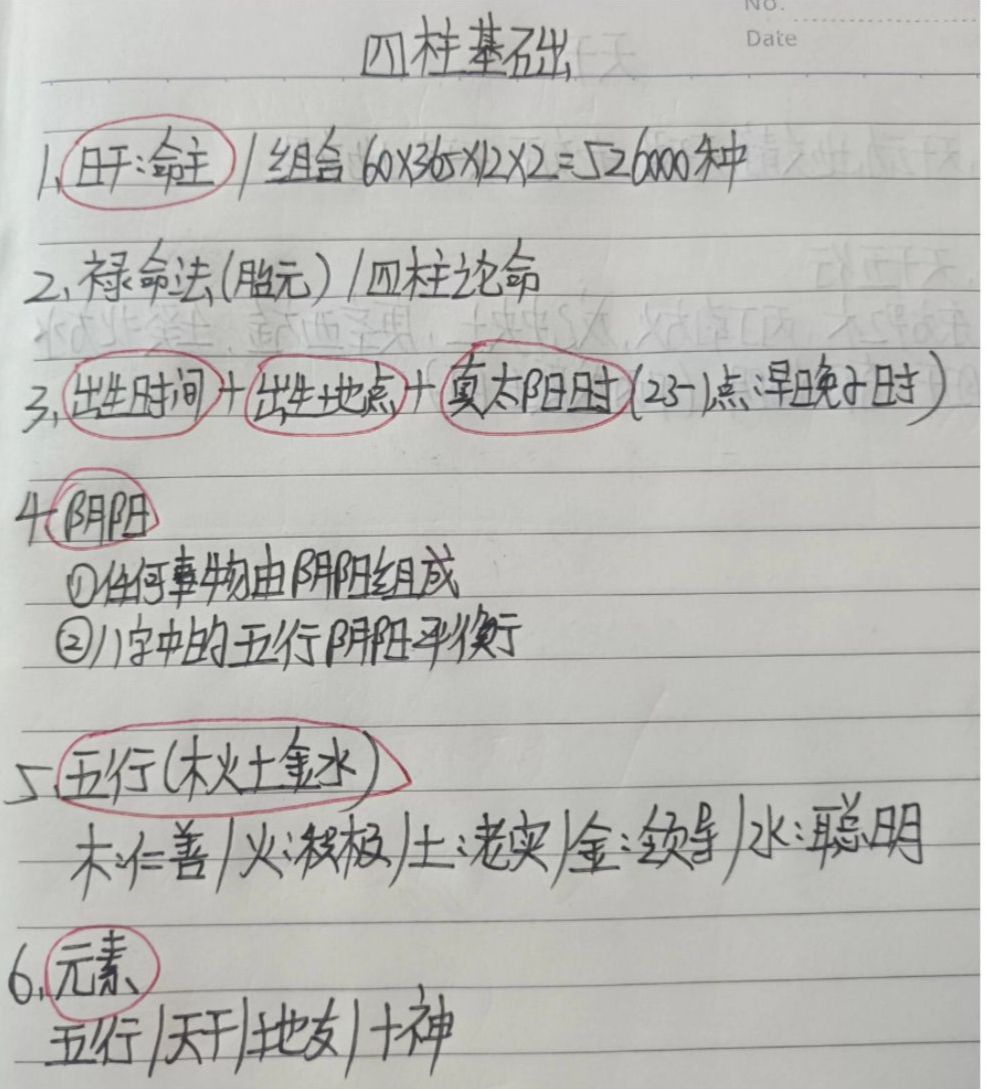 No.
Date
四柱基础
1、日干:命主 / 组合 60×365×12×2=526000种
2、禄命法(胎元) / 四柱论命
3、出生时间 + 出生地点 + 真太阳时 (23-1点:早晚子时)
4、阴阳
①任何事物由阴阳组成
②八字中的五行阴阳平衡
5、五行(木火土金水)
木:仁善 / 火:积极 / 土:老实 / 金:领导 / 水:聪明
6、元素
五行 / 天干 / 地支 / 十神